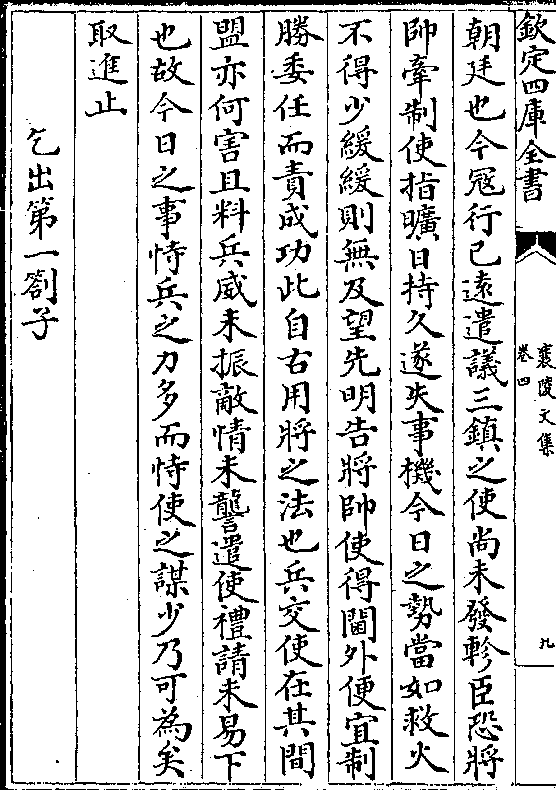 欽定四庫全書
襄陵文集
卷四
九
朝廷也今寇行已遠遣議三鎮之使尚未發軫臣恐將
帥牽制使指曠日持久遂失事機今日之勢當如救火
不得少緩緩則無及望先明告將帥使得閫外便宜制
勝委任而責成功此自古用將之法也兵交使在其間
盟亦何害且料兵威未振敵情未讋遣使禮請未易下
也故今日之事恃兵之力多而恃使之謀少乃可為矣
取進止
乞出第一劄子